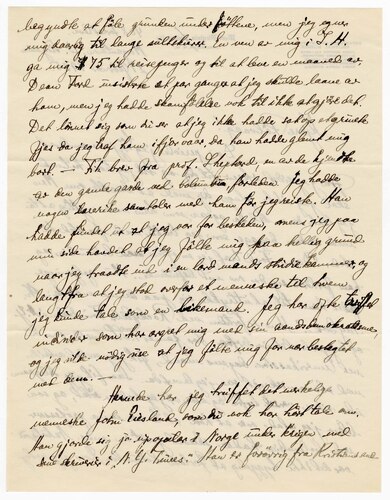 begyndte at føle grunden under føttene, men jeg egner
mig daarlig til lange sultekurer. En ven av mig i I. H.
ga mig $75 til reisepenger og til at leve en maaned av.
Daan Ford insisterte et par ganger at jeg skulde laane av
ham, men jeg hadde skamfølelse nok til ikke at gjøre det.
Det lønnet sig som du ser at jeg ikke hadde
jeg traf ham ifjor vaar, da han hadde glemt mig
bort. — Fik brev fra prof. Shepherd, en av de kjendte
av den gamle garde ved forleden. Jeg hadde
nogen samtaler med ham før jeg reiste. Han
hadde fundet ut at jeg var for beskeden, mens jeg paa
min side handlet at jeg følte mig paa hellig grund
naar jeg traadte ind i en lærd mands studiekammer, og
langtfra at jeg stod overfor et menneske til hvem
jeg kunde tale som en likemand. Jeg har ofte truffet
som har ærgret mig med sin aandshovmod,
og jeg ikke at jeg følte mig for nær beslegtet
med dem. —
Herinde har jeg truffet det merkelige
menneske John Riesland, som du nok har hørt tale om.
Han gjorde sig jo upopulær i Norge under krigen med
sine skriverier i N. Y. Times. Han er forøvrig fra Kristianssand